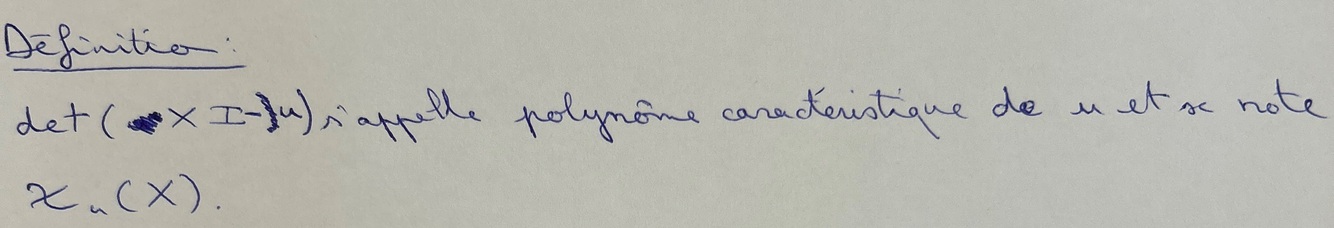 Définition :
det (X I - u) s'appelle polynôme caractéristique de u et se note
χ_u (X).